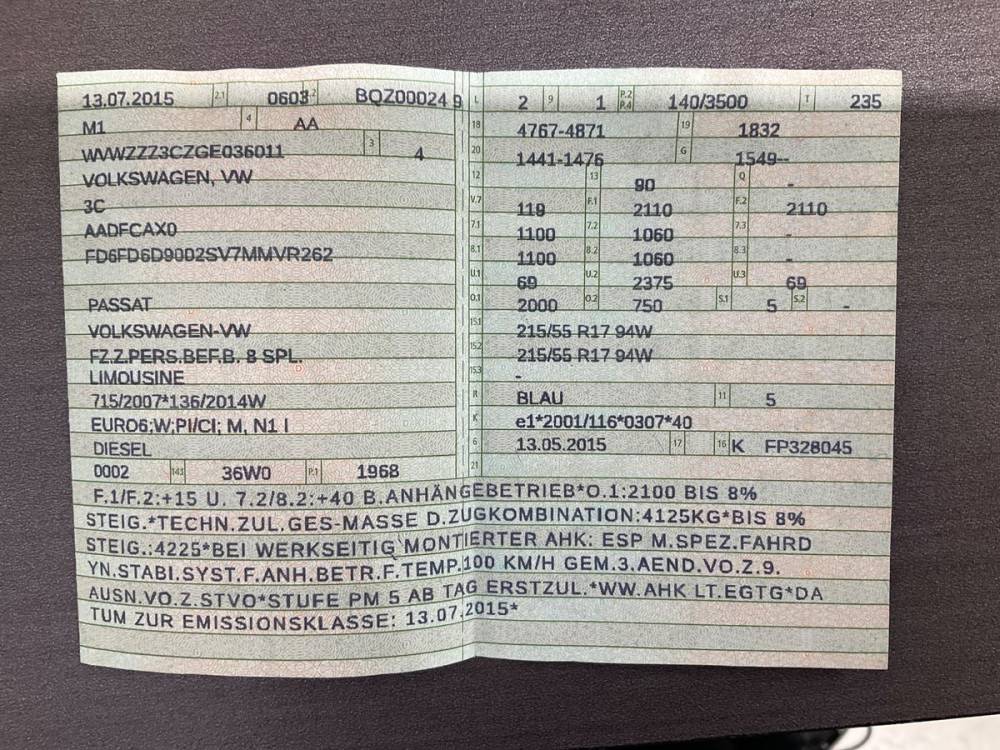 13.07.2015 2.1 0603 2.2 BQZ00024 9
M1 4 AA
WVWZZZ3CZGE036011 3 4
VOLKSWAGEN, VW
3C
AADFCAX0
FD6FD6D9002SV7MMVR262
PASSAT
VOLKSWAGEN-VW
FZ.Z.PERS.BEF.B. 8 SPL.
LIMOUSINE
715/2007*136/2014W
EURO6;W;PI/CI; M, N1 I
DIESEL
0002 14.1 36W0 P.1 1968
L 2 9 1 P.2 P.4 140/3500 T 235
18 4767-4871 19 1832
20 1441-1476 G 1549--
12 13 90 Q -
V.7 119 F.1 2110 F.2 2110
7.1 1100 7.2 1060 7.3 -
8.1 1100 8.2 1060 8.3 -
U.1 69 U.2 2375 U.3 69
O.1 2000 O.2 750 S.1 5 S.2 -
15.1 215/55 R17 94W
15.2 215/55 R17 94W
15.3 -
R BLAU 11 5
K e1*2001/116*0307*40
6 13.05.2015 17 16 K FP328045
21
F.1/F.2:+15 U. 7.2/8.2:+40 B.ANHÄNGEBETRIEB*O.1:2100 BIS 8%
STEIG.*TECHN.ZUL.GES-MASSE D.ZUGKOMBINATION:4125KG*BIS 8%
STEIG.:4225*BEI WERKSEITIG MONTIERTER AHK: ESP M.SPEZ.FAHRD
YN.STABI.SYST.F.ANH.BETR.F.TEMP.100 KM/H GEM.3.AEND.VO.Z.9.
AUSN.VO.Z.STVO*STUFE PM 5 AB TAG ERSTZUL.*WW.AHK LT.EGTG*DA
TUM ZUR EMISSIONSKLASSE: 13.07.2015*